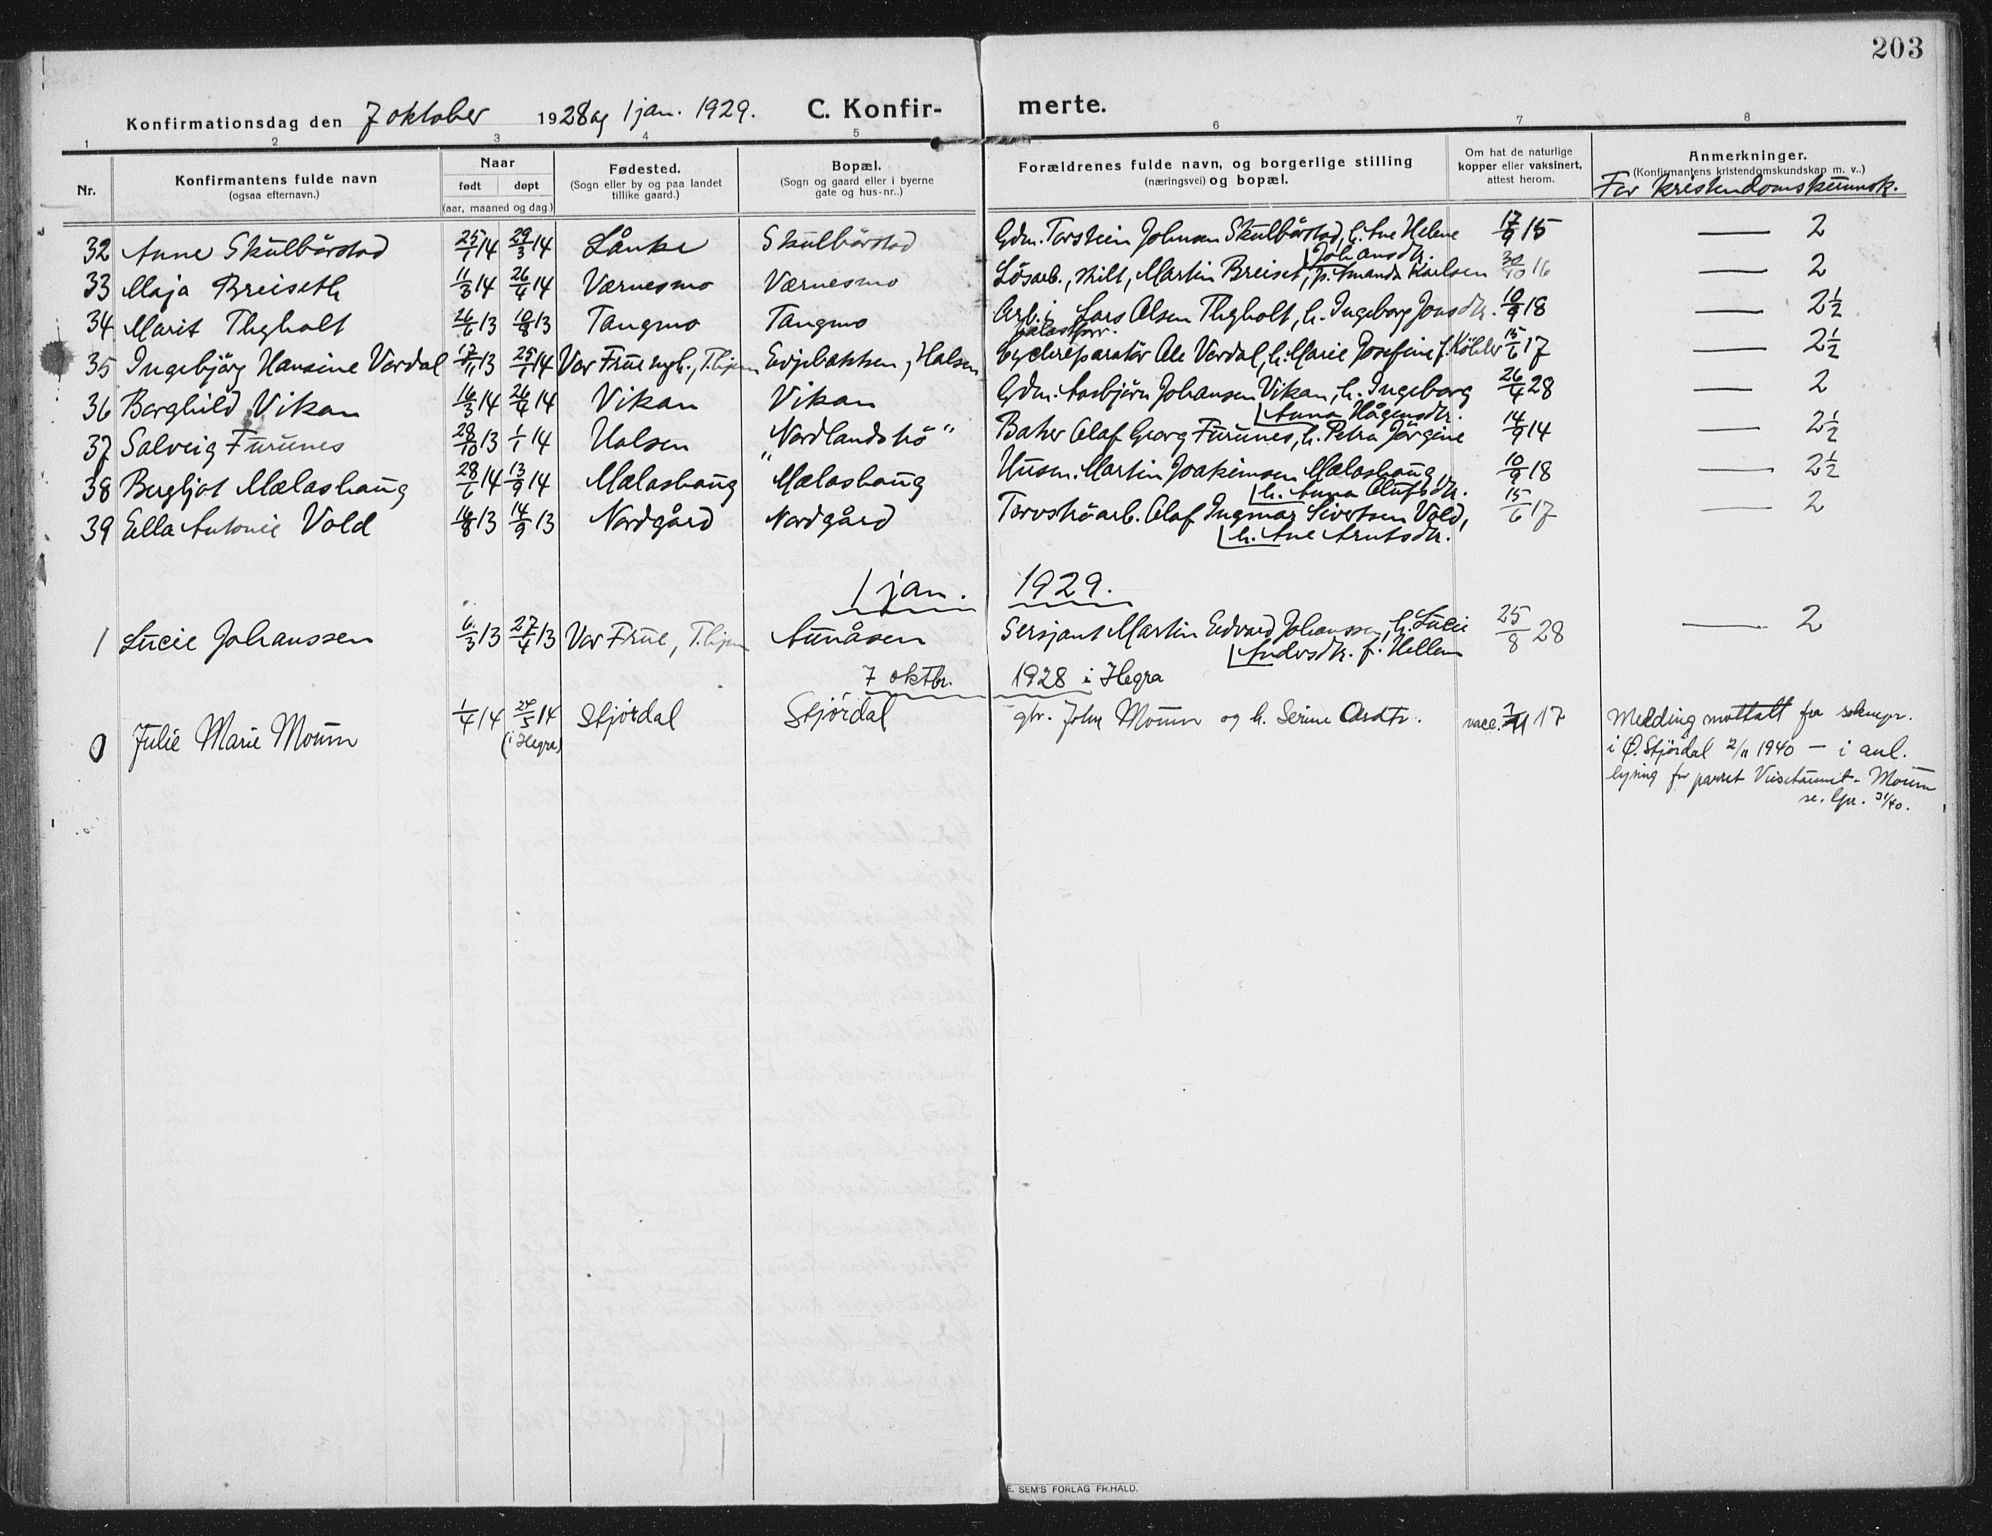 203
Konfirmationsdag den 7 oktober 1928 og 1 jan. 1929. C. Konfir- merte.
1 2 3 4 5 6 7 8
Nr. Konfirmantens fulde navn (ogsaa efternavn.) Naar født døpt (aar, maaned og dag.) Fødested. (Sogn eller by og paa landet tillike gaard.) Bopæl. (Sogn og gaard eller i byerne gate og hus-nr.) Forældrenes fulde navn, og borgerlige stilling (næringsvei) og bopæl. Om hat de naturlige kopper eller vaksinert, attest herom. Anmerkninger. (Konfirmantens kristendomskundskap m. v.)
For kristendomskunnsk.
32 Anne Skulbörstad 25/1 14 29/3 14 Lånke Skulbörstad Gdm. Torstein Johnsen Skulbörstad, h. Ane Helene 17/9 15 — 2
Johansdtr.
33 Maja Breiseth 11/3 14 26/4 14 Værnesmo Værnesmo Løsarb., skilt, Martin Breiset, p. Amanda Karlsen 30/10 16 — 2
34 Marit Thyholt 26/6 13 10/8 13 Tangmo Tangmo Arb. i Lars Olsen Thyholt, h. Ingeborg Jonsdtr. 10/9 18 — 2½
35 Ingebjörg Hansine Verdal 17/11 13 25/1 14 Vor Frue, Thjem Evjebakken, Halsen Cyclereparatör Ole Verdal, h. Marie Josefine f. Köhler 15/6 17 — 2½
36 Borghild Vikan 16/3 14 26/4 14 Vikan Vikan Gdm. Aasbjörn Johansen Vikan, h. Ingeborg 26/4 28 — 2
Anna Hågensdtr.
37 Solveig Furunes 28/10 13 1/1 14 Halsen "Nordlandshö" Baker Olaf Georg Furunes, h. Petra Jörgine 14/9 14 — 2½
38 Bergljot Mælashaug 28/6 14 13/9 14 Mælashaug Mælashaug Husm. Martin Joakimsen Mælashaug, 10/9 18 — 2½
h. Anna Olufsdtr.
39 Ella Antonie Vold 16/8 13 14/9 13 Nordgård Nordgård Olaf Ingmar Sivertsen Vold, 15/6 17 — 2
h. Ane Arntsdtr.
1 jan. 1929.
1 Lucie Johanssen 6/3 13 27/4 13 Vor Frue, Thjem Aunåsen Sersjant Martin Edvard Johanssen, h. Lucie 25/8 28 — 2
Andersdtr. f. Hellem
7 oktbr. 1928 i Hegra
0 Julie Marie Moum 1/4 14 24/5 14 Stjördal Stjördal gbr. John Moum og h. Serine vacc. 17 Melding mottatt fra soknepr.
(i Hegra) i Ø. Stjördal 2/11 1940 — i anl.
lysing for parret - Moum
se. 31/40.
E. SEM'S FORLAG FR.HALD.